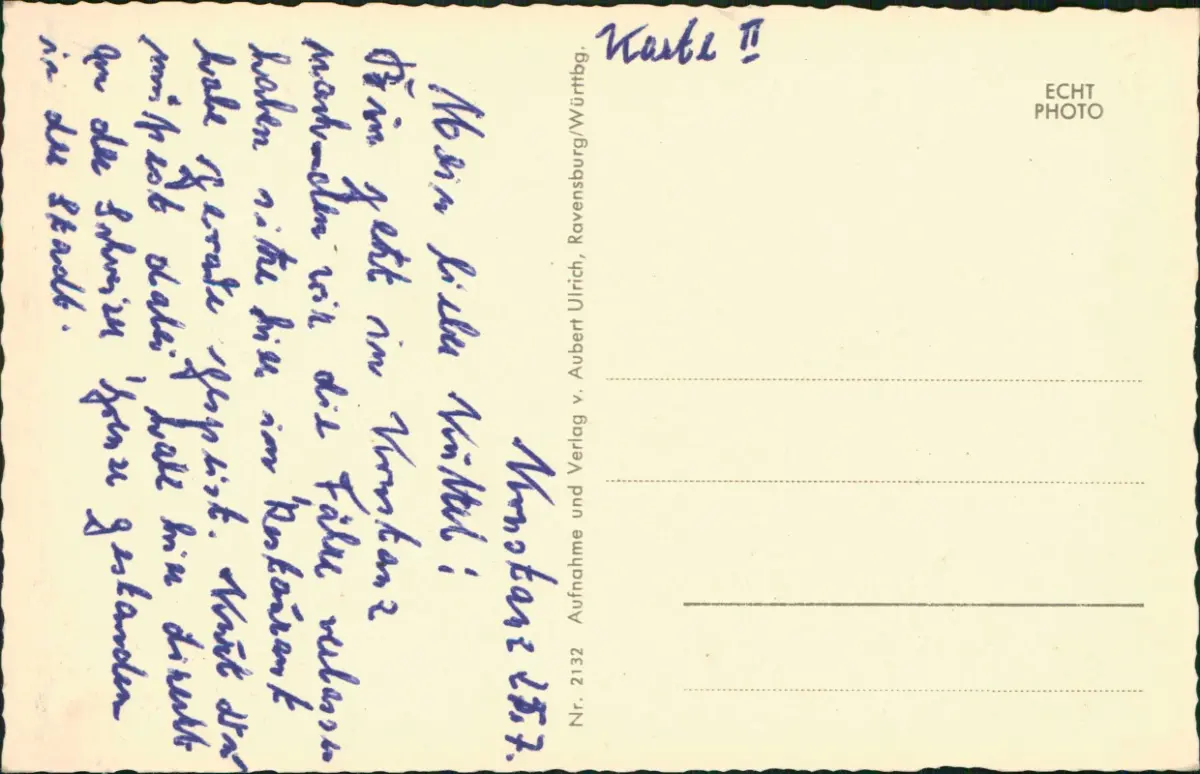 Karte II
ECHT
PHOTO
Nr. 2132 Aufnahme und Verlag v. Aubert Ulrich, Ravensburg/Württbg.
Konstanz 25.7.
Mein lieber
Bin jetzt in Konstanz
nachdem wir die Fähre verlassen
haben sitze hier im Restaurant
habe gerade gespeist. Kurt Du
müßest dabei habe hier direkt
an der Schweizer Grenze gestanden
in der Stadt.